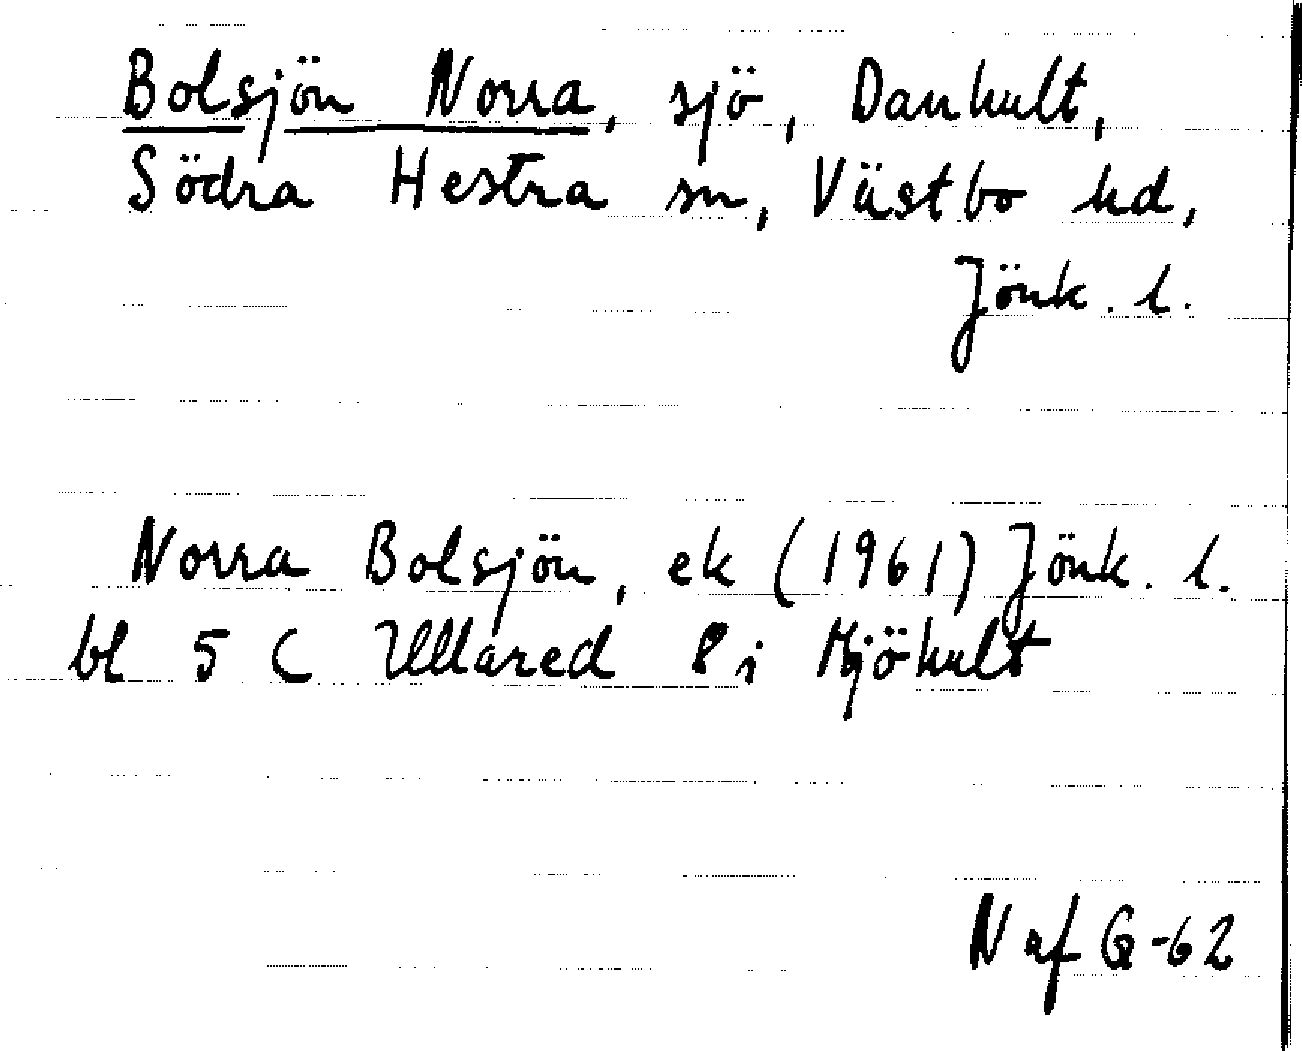 Bolsjön Norra, sjö, Danhult,
Södra Hestra sn, Västbo hd,
Jönk. l.
Norra Bolsjön, ek (1961) Jönk. l.
bl 5 C Ullared 8 i Mjöhult
N af G-62